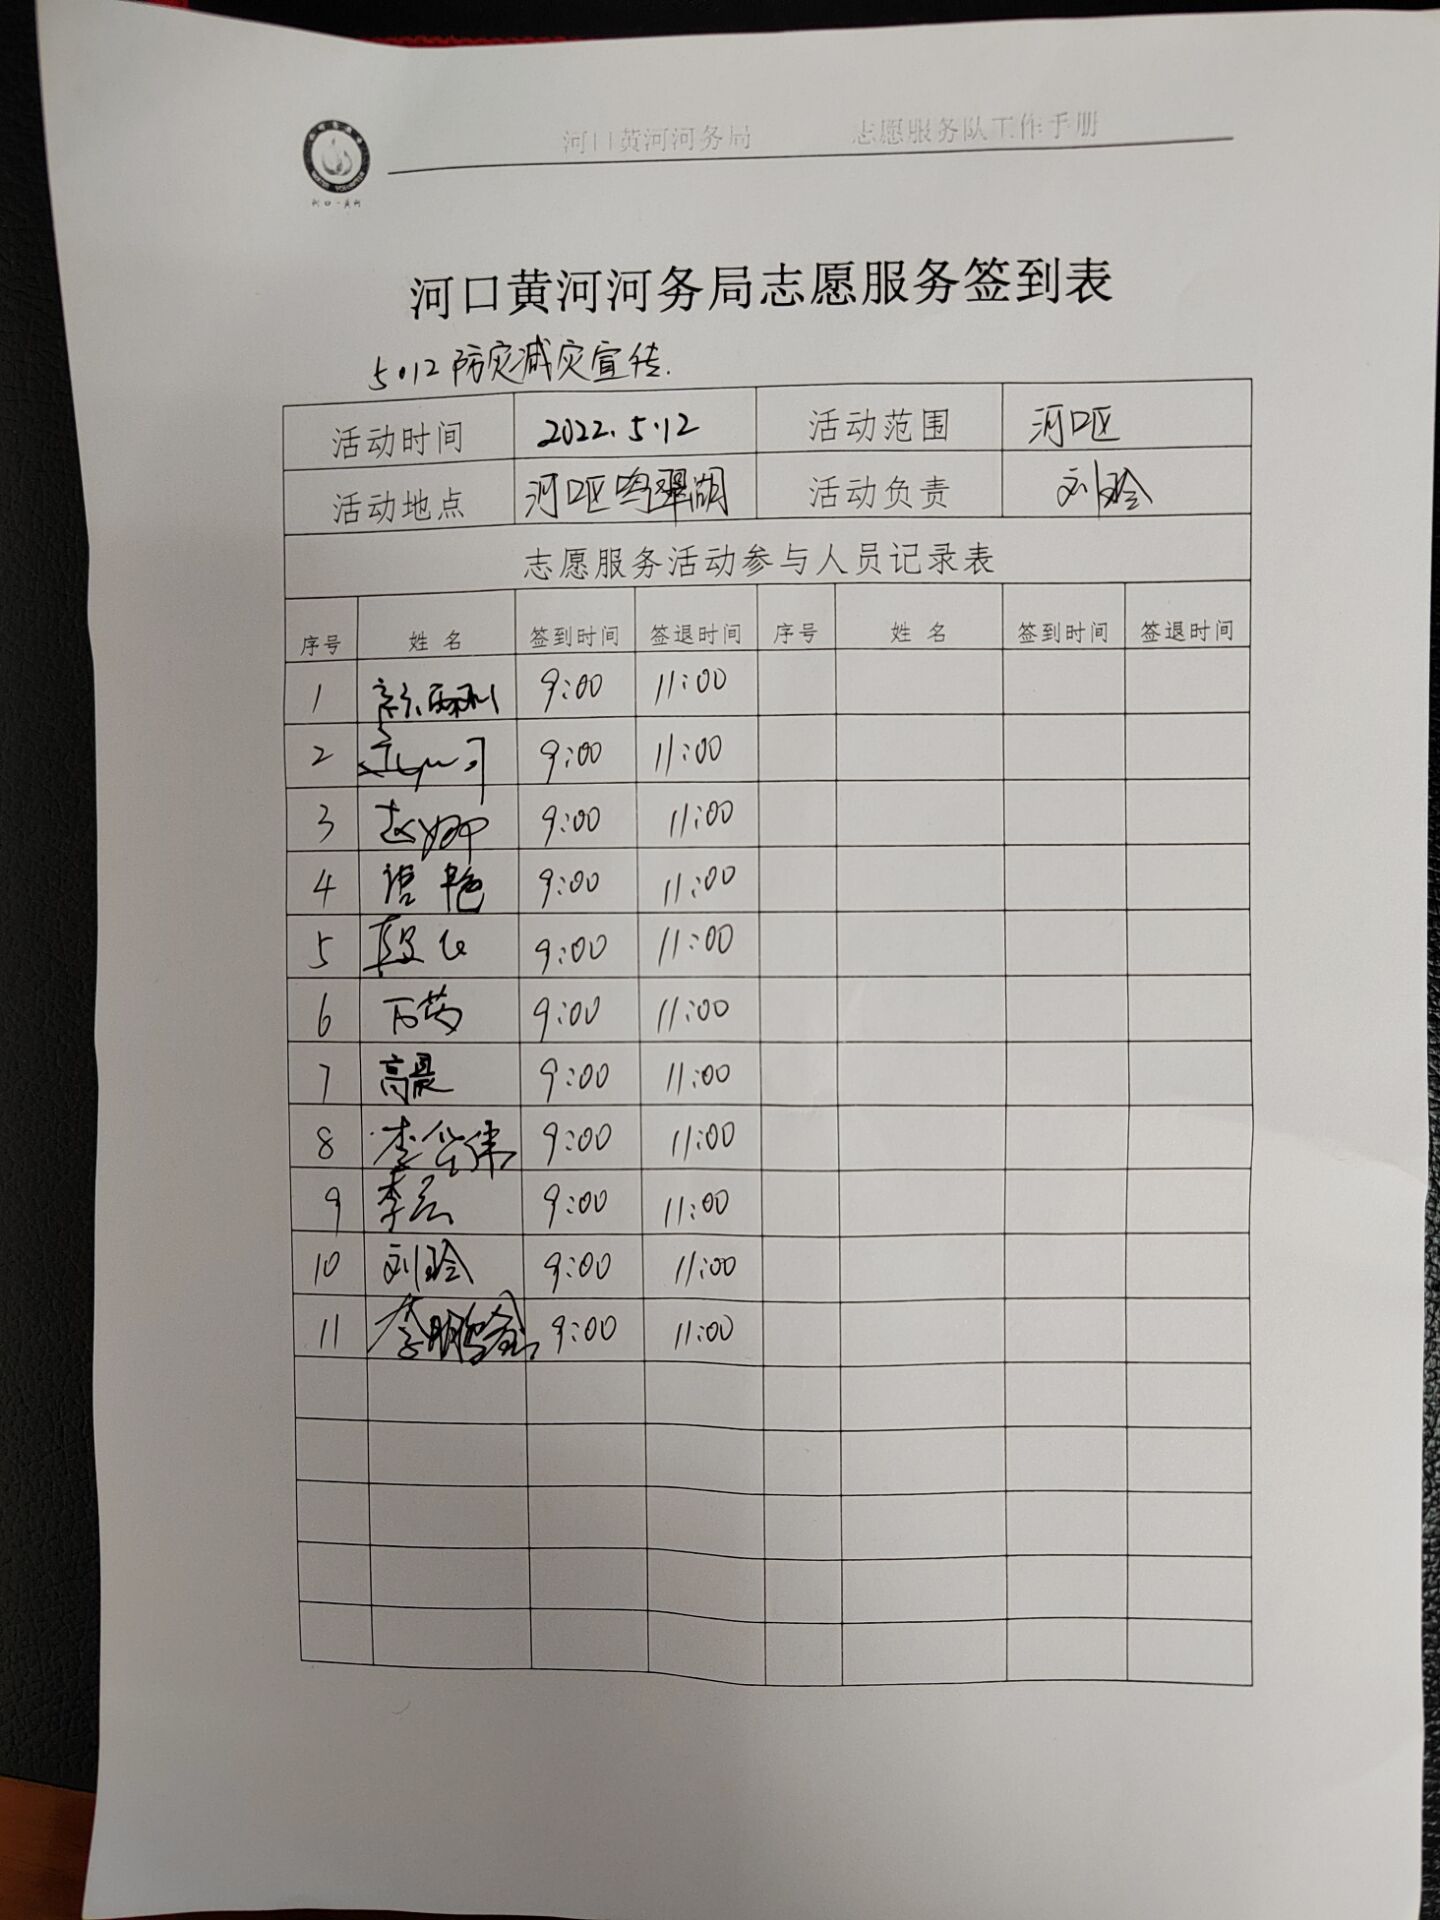 河口黄河河务局 志愿服务队工作手册
河口·黄河
河口黄河河务局志愿服务签到表
5.12防灾减灾宣传.
活动时间 2022.5.12 活动范围 河口区
活动地点 河口区鸣翠湖 活动负责 刘玲
志愿服务活动参与人员记录表
序号 姓名 签到时间 签退时间 序号 姓名 签到时间 签退时间
1 9:00 11:00
2 9:00 11:00
3 赵娜 9:00 11:00
4 唐艳 9:00 11:00
5 9:00 11:00
6 万芳 9:00 11:00
7 高晨 9:00 11:00
8 李 伟 9:00 11:00
9 李 9:00 11:00
10 刘玲 9:00 11:00
11 李鹏 9:00 11:00